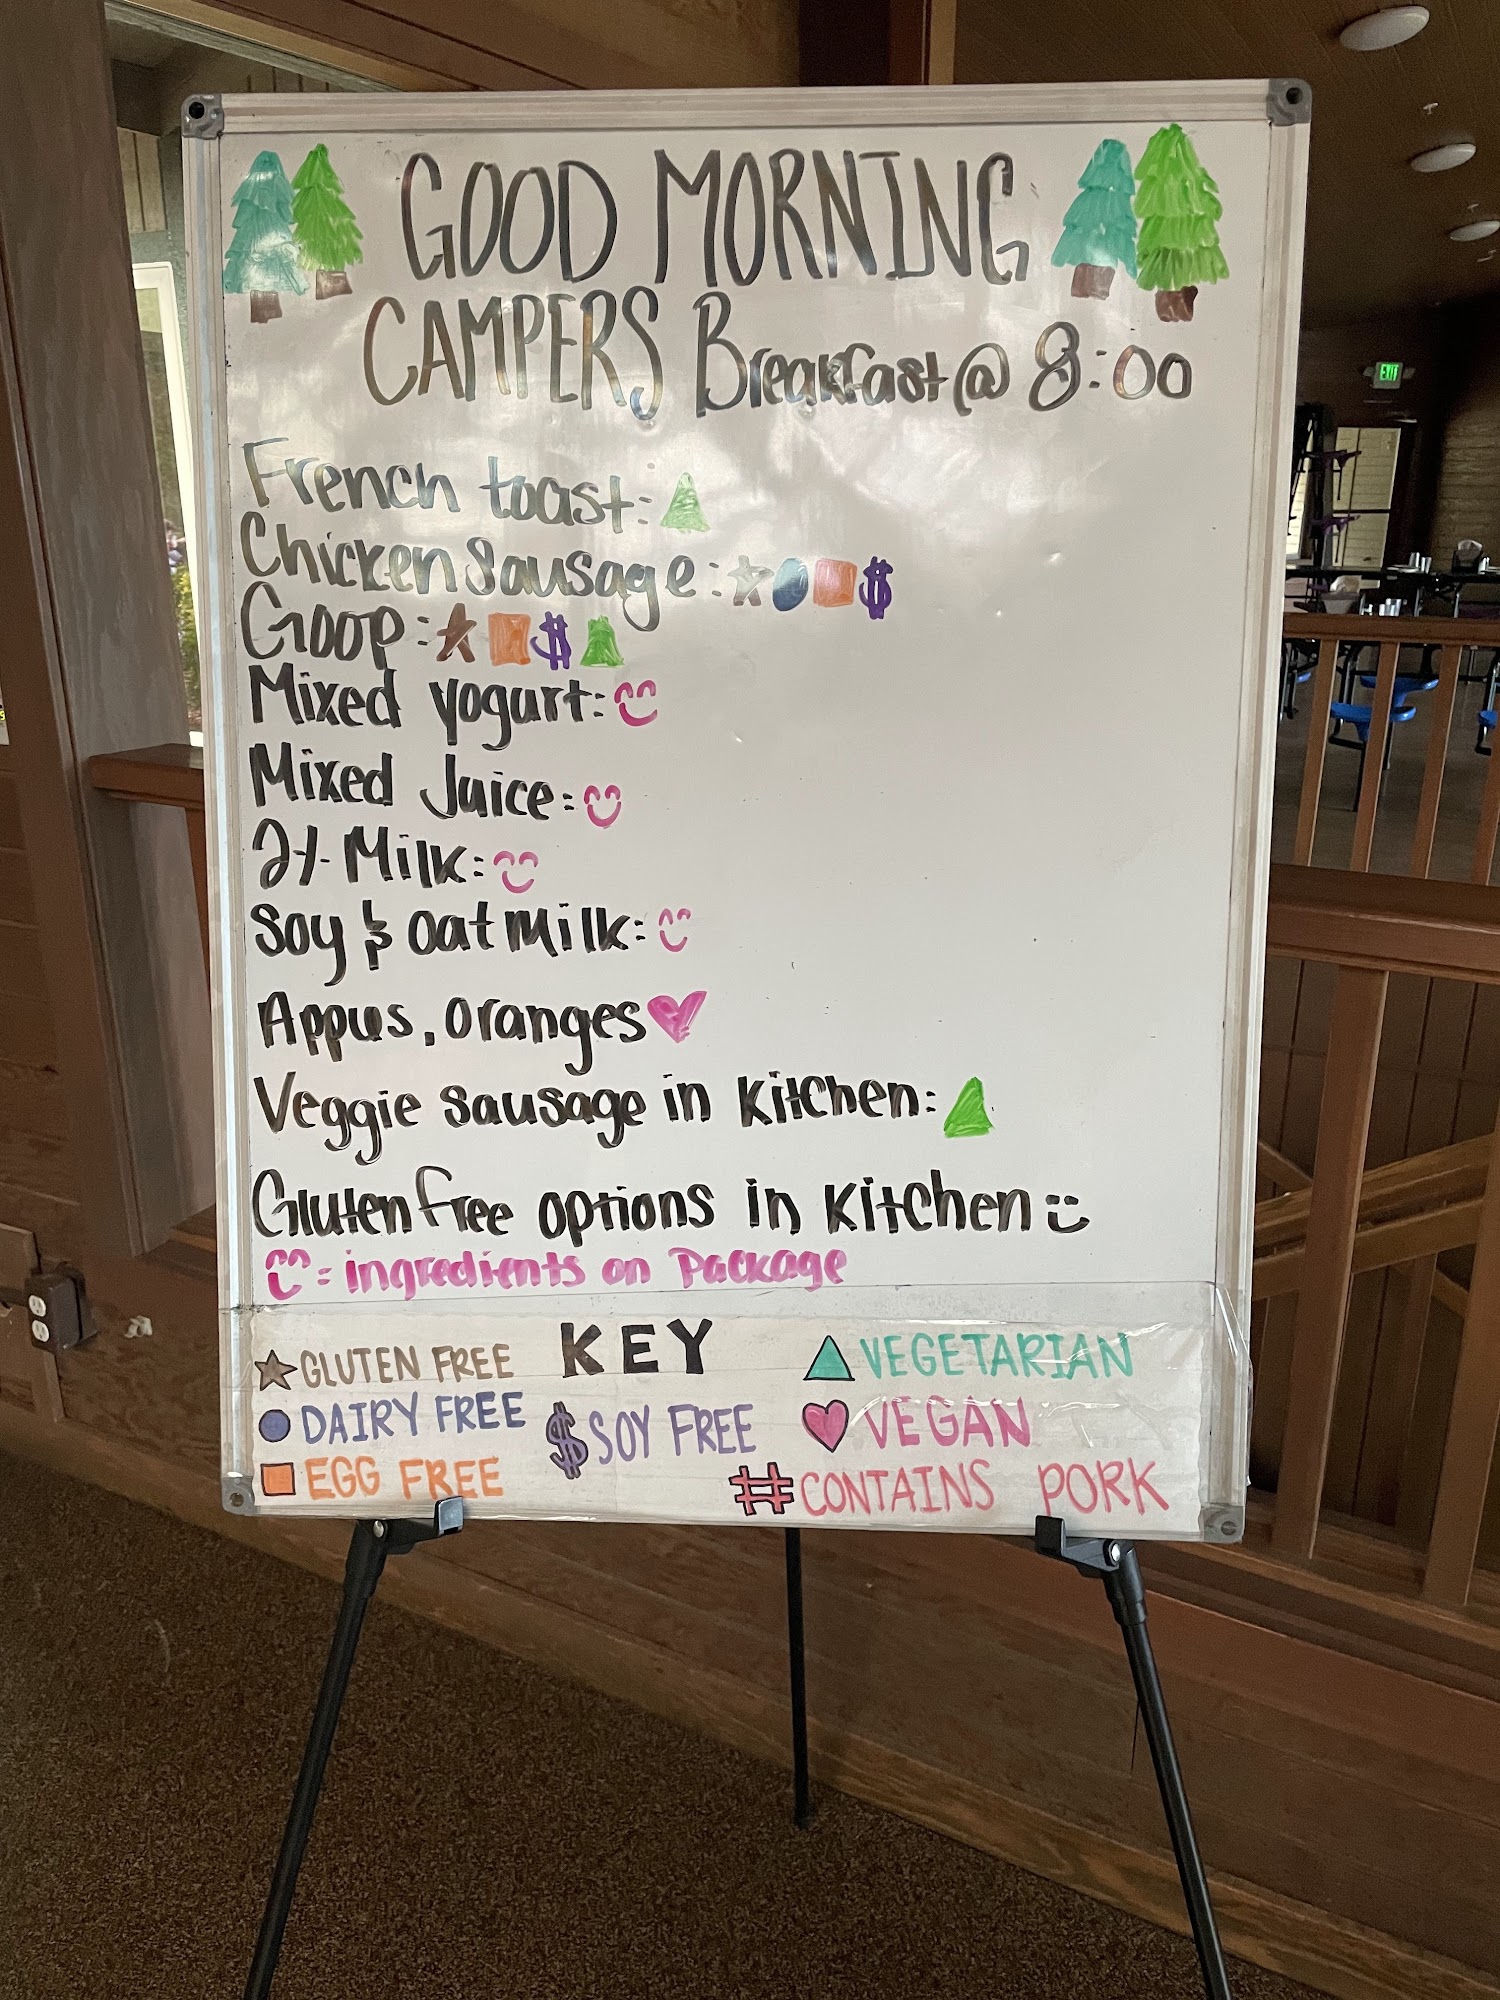 GOOD MORNING
CAMPERS Breakfast @ 8:00
French toast:
Chicken Sausage:
Goop:
Mixed yogurt:
Mixed Juice:
2% Milk:
Soy & oat Milk:
Apples, oranges
Veggie sausage in kitchen:
Gluten free options in kitchen
= ingredients on package
KEY
GLUTEN FREE
DAIRY FREE
EGG FREE
$ SOY FREE
VEGETARIAN
VEGAN
# CONTAINS PORK
EXIT